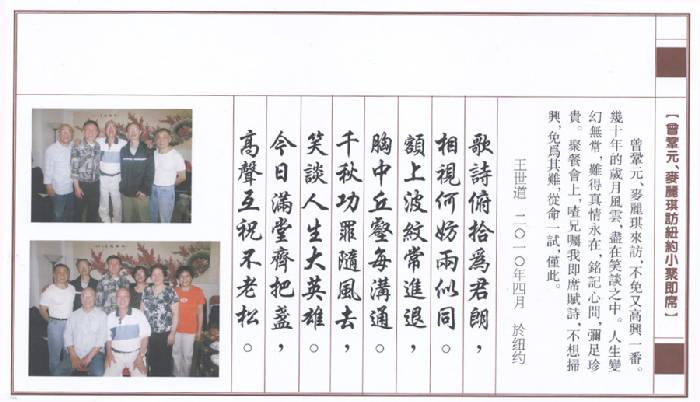 【曾鞏元、麥麗琪訪紐約小聚即席】
曾鞏元、麥麗琪來訪,不免又高興一番。
幾十年的歲月風雲,盡在笑談之中。人生變
幻無常,難得真情永在,銘記心間,彌足珍
貴。聚餐會上,喳兄囑我即席賦詩,不想掃
興,免爲其難,從命一試,僅此。
王世道 二〇一〇年四月 於纽约
歌詩俯拾爲君朗,
相視何妨兩似同。
額上波紋常進退,
胸中丘壑每溝通。
千秋功罪隨風去,
笑談人生大英雄。
今日滿堂齊把盞,
高聲互祝不老松。